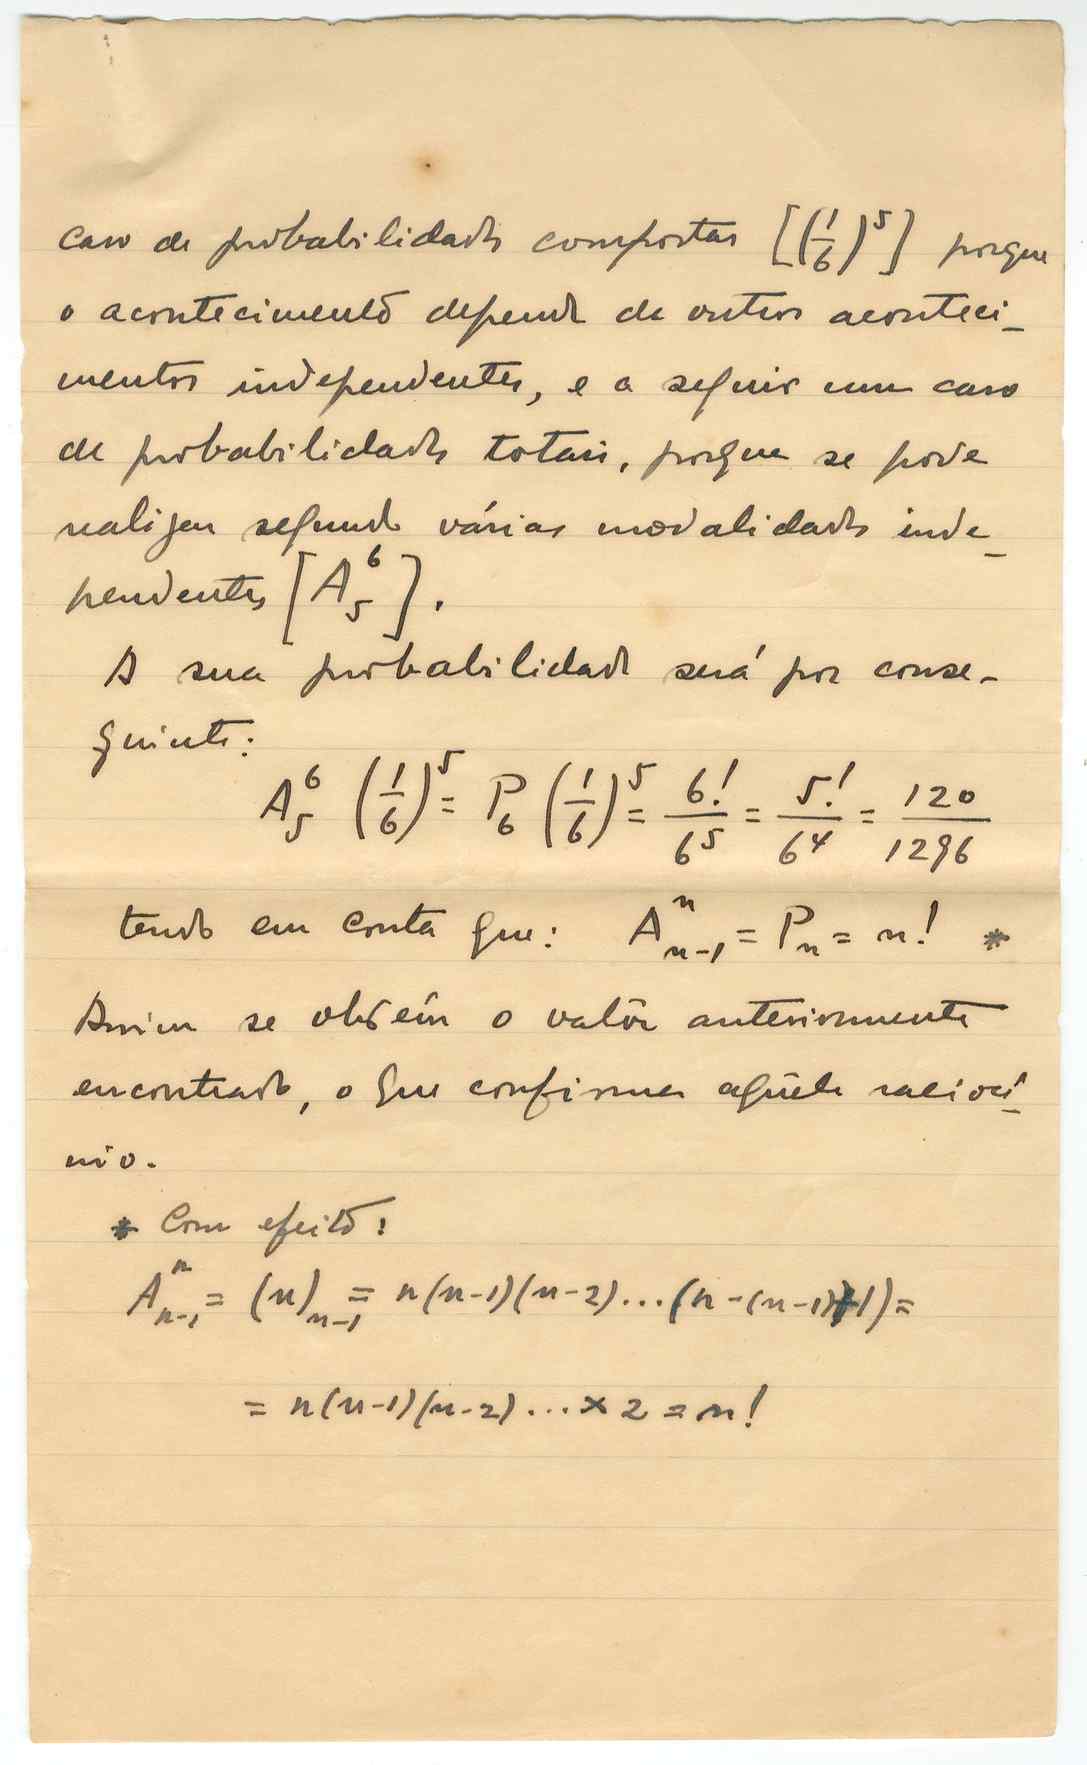 caso de probabilidades compostas [(1/6)^5] porque
o acontecimento depende de outros aconteci-
mentos independentes, e a seguir um caso
de probabilidades totais, porque se pode
realizar segundo várias modalidades inde-
pendentes [A_5^6].
A sua probabilidade será por conse-
guinte:
A_5^6 (1/6)^5 = P_6 (1/6)^5 = 6!/6^5 = 5!/6^4 = 120/1296
tendo em conta que: A_{n-1}^n = P_n = n! *
Assim se obtém o valôr anteriormente
encontrado, o que confirma aquêle raciocí-
nio.
* Com efeito:
A_{n-1}^n = (n)_{n-1} = n(n-1)(n-2)...(n-(n-1)+1) =
= n(n-1)(n-2)...×2 = n!